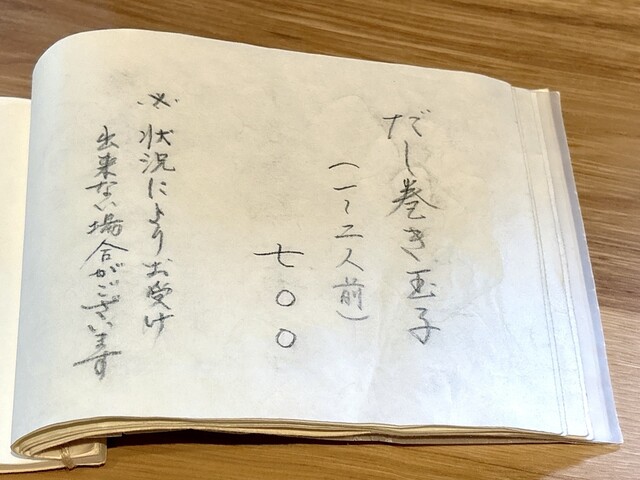 だし巻き玉子
（一〜二人前）
七〇〇
※状況によりお受け
出来ない場合がございます